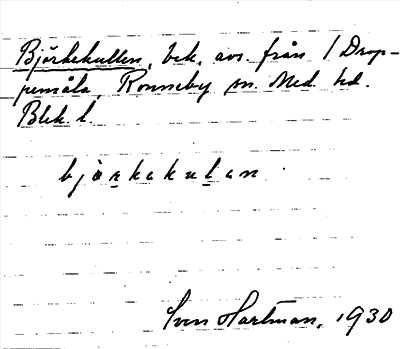 Björkekullen, bek. avs. från 1 Drop-
pemåla, Ronneby sn. Med. hd.
Blek. l.
björkakulen
Sven Hartman, 1930